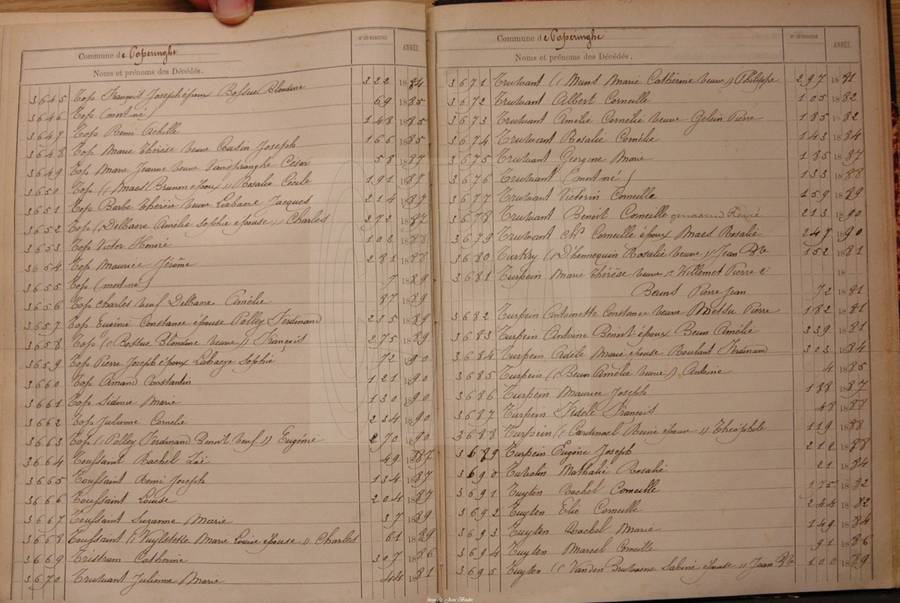 Commune de Poperinghe
Noms et prénoms des Décédés.
ANNÉE.
3645 Top François Joseph époux Bossus Blondine 322 1884
3646 Top (mort né) 69 1885
3647 Top Remi Achille 148 1885
3648 Top Marie Thérèse veuve Joseph 166 1885
3649 Top Marie Jeanne veuve Vanspranghe César 58 1887
Top ( Brunon époux )) Rosalie Cécile 191 1887
3651 Top Barbe Thérèse veuve Labaere Jacques 214 1887
3652 Top (Delbaere Amélie Sophie épouse )) Charles 273 1887
3653 Top Victor Honoré 103 1888
3654 Top Maurice Jérôme 281 1888
3655 Top (mort né) 7 1889
3656 Top Charles veuf Delbaere Amélie 87 1889
3657 Top Eugénie Constance épouse Palley Ferdinand 235 1889
3658 Top (Bossus Blondine veuve )) François 275 1889
3659 Top Pierre Joseph époux Labaeye Sophie 72 1890
3660 Top Amand Constantin 121 1890
3661 Top Sidonie Marie 130 1890
3662 Top Julienne Cornélie 234 1890
3663 Top (Palley Ferdinand Benoit veuf )) Eugénie 270 1890
3664 Toussaint Rachel 49 1887
3665 Toussaint Remi Joseph 134 1887
3666 Toussaint Louise 204 1887
3667 Toussaint Suzanne Marie 37 1889
3668 Toussaint ( Marie Louise épouse )) Charles 61 1889
3669 Tristram Catherine 307 1886
3670 Truwant Julienne Marie 44 1881
Commune de Poperinghe
Noms et prénoms des Décédés.
ANNÉE.
3671 Truwant ( Marie Catherine veuve )) Philippe 297 1881
3672 Truwant Albert Corneille 105 1882
3673 Truwant Amélie Cornélie veuve Pierre 185 1882
3674 Truwant Rosalie Cornélie 143 1884
3675 Truwant Georgine Marie 135 1887
3676 Truwant (mort né) 133 1888
3677 Truwant Victorin Corneille 159 1889
3678 Truwant Benoit Corneille 213 1890
3679 Truwant Corneille époux Maes Rosalie 247 1890
3680 (D'hennequin Rosalie veuve )) Jean Bte 152 1881
3681 Turpein Marie Thérèse veuve 1° Willemet Pierre 2° 18
Beuns Pierre Jean 72 1881
3682 Turpein Antoinette Constance veuve Pierre 182 1881
3683 Turpein Antoine Benoit époux Beun Amélie 339 1881
3684 Turpein Adèle Marie épouse Roulant Ferdinand 303 1884
3685 Turpein (Beun Amélie veuve )) Antoine 4 1885
3686 Turpein Maurice Joseph 138 1887
3687 Turpein Fidèle François 48 1888
3688 Turpein (Cardinael épouse )) Théophile 119 1888
3689 Turpein Eugène Joseph 212 1888
3690 Nathalie Rosalie 21 1884
3691 Tuyten Rachel Corneille 175 1882
3692 Tuyten Elie Corneille 244 1882
3693 Tuyten Rachel Marie 149 1884
3694 Tuyten Marcel Corneille 91 1886
3695 Tuyten ( Sabine épouse )) Jean Bte 100 1889